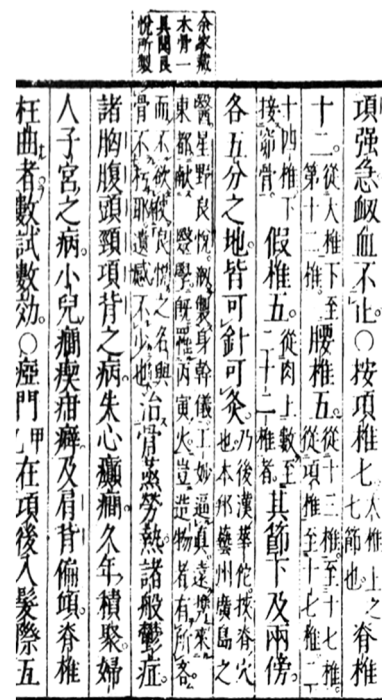 余家藏
木骨一
具 良
悅所製
項强急衂血不止。○按項椎七。大椎上之七節也。脊椎
十二。從大椎下至第十二椎。腰椎五。從十三椎至十七椎。從項椎至十七椎二
十四椎下接窮骨。假椎五。從肉上數至二十二椎者。其節下及兩傍。
各五分之地皆可針可灸。乃後漢華佗挾脊穴也。本邦藝州廣島之
醫星野良悅。刱製身幹儀工妙逼真。遠攜來東都獻 醫學旣罹丙寅火。豈造物者有所吝。
而不欲使良悅之名與骨不朽耶遺憾不少也治骨蒸勞熱諸般鬱症。
諸胸腹頭頸項背之病失心癲癎久年積聚婦
人子宮之病。小兒癎瘈疳癖及肩背偏項脊椎
枉曲者數試數効。○瘂門甲乙在項後入髮際五